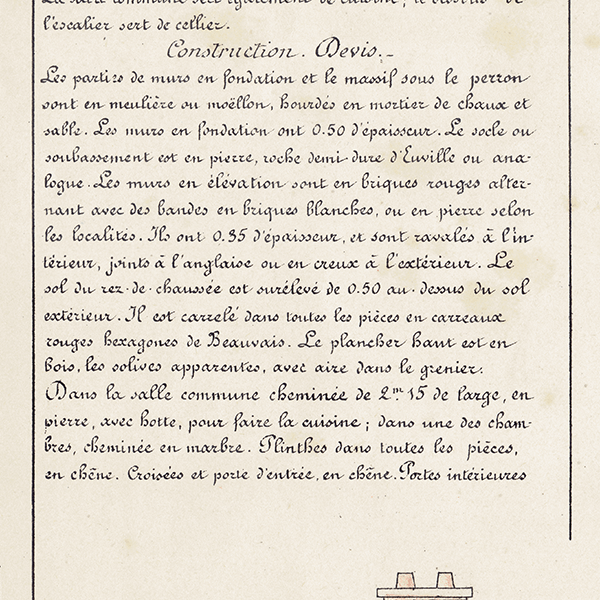 La salle commune sert également de cuisine ; le dessous de
l'escalier sert de cellier.
Construction. Devis._
Les parties de murs en fondation et le massif sous le perron
sont en meulière ou moëllon, hourdés en mortier de chaux et
sable. Les murs en fondation ont 0.50 d'épaisseur. Le socle ou
soubassement est en pierre, roche demi dure d'Euville ou ana-
logue. Les murs en élévation sont en briques rouges alter-
nant avec des bandes en briques blanches, ou en pierre selon
les localités. Ils ont 0.35 d'épaisseur, et sont ravalés à l'in-
térieur, joints à l'anglaise ou en creux à l'extérieur. Le
sol du rez-de-chaussée est surélevé de 0.50 au-dessus du sol
extérieur. Il est carrelé dans toutes les pièces en carreaux
rouges hexagones de Beauvais. Le plancher haut est en
bois, les solives apparentes, avec aire dans le grenier.
Dans la salle commune cheminée de 2m 15 de large, en
pierre, avec hotte, pour faire la cuisine ; dans une des cham-
bres, cheminée en marbre. Plinthes dans toutes les pièces,
en chêne. Croisées et porte d'entrée, en chêne. Portes intérieures